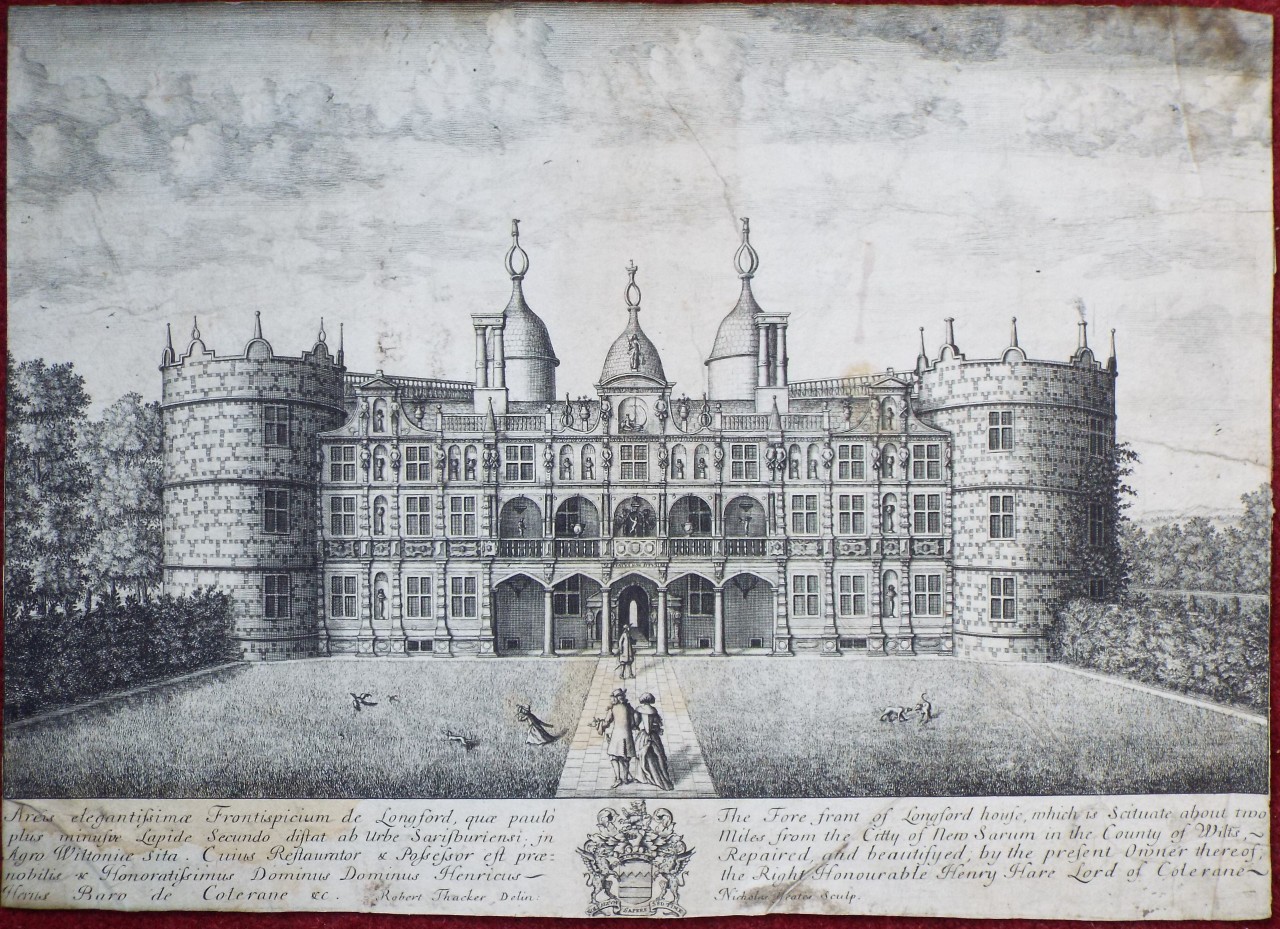 Arcis elegantiſsimæ Frontispicium de Longford, quæ pauló
plus minuſve Lapide Secundo diſtat ab Urbe Sariſburiensi, in
Agro Wiltoniæ Sita. Cuius Reſtaurator & Poſseſsor eſt præ-
nobilis & Honoratiſsimus Dominus Dominus Henricus~
Herus Baro de Colerane &c. Robert Thacker Delin:
The Fore front of Longford houſe, which is Scituate about two
Miles from the Citty of New Sarum in the County of Wilts,~
Repaired, and beautifyed, by the preſent Owner thereof,
the Right Honourable Henry Hare Lord of Colerane~
Nicholas Yeates Sculp.